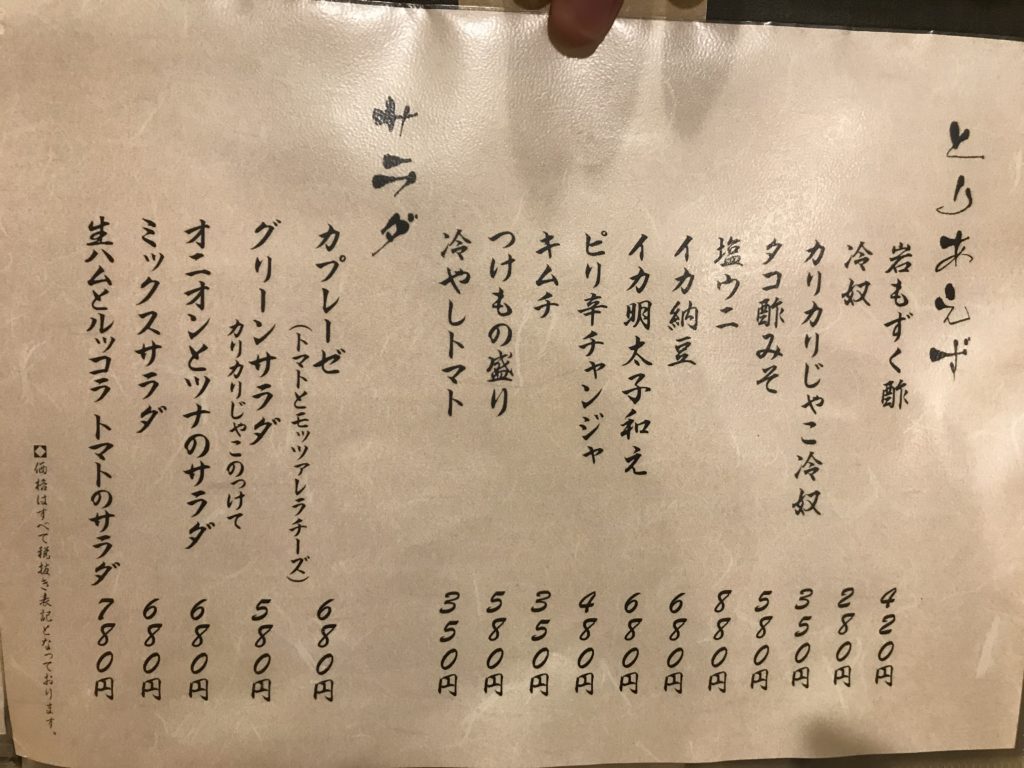 とりあえず
岩もずく酢 420円
冷奴 280円
カリカリじゃこ冷奴 350円
タコ酢みそ 580円
塩ウニ 880円
イカ納豆 680円
イカ明太子和え 680円
ピリ辛チャンジャ 480円
キムチ 350円
つけもの盛り 580円
冷やしトマト 350円
サラダ
カプレーゼ 680円
（トマトとモッツァレラチーズ）
グリーンサラダ 580円
カリカリじゃこのっけて
オニオンとツナのサラダ 680円
ミックスサラダ 680円
生ハムとルッコラ トマトのサラダ 780円
◆価格はすべて税抜き表記となっております。